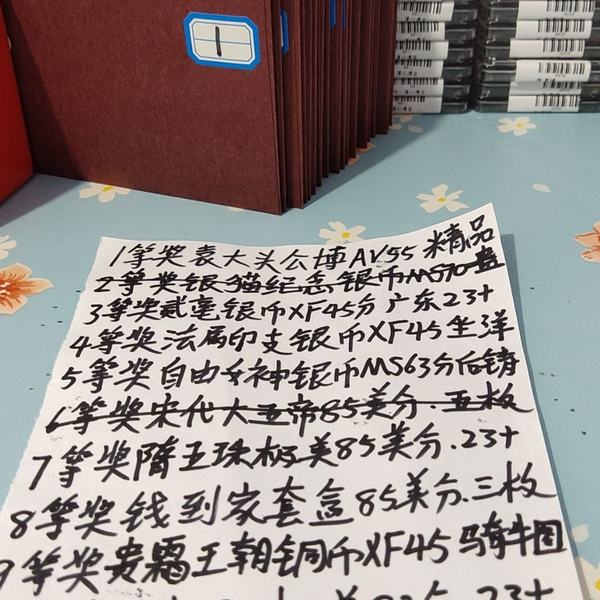 1
1等奖袁大头公博AV55 精品
2等奖银猫纪念银币MS70盒
3等奖贰毫银币XF45分广东23+
4等奖法属印支银币XF45坐洋
5等奖自由女神银币MS63分后铸
6等奖宋代大五帝85美分.五枚
7等奖隋五珠极美85美分.23+
8等奖钱到家套盒85美分.三枚
9等奖贵霜王朝铜币XF45骑牛图